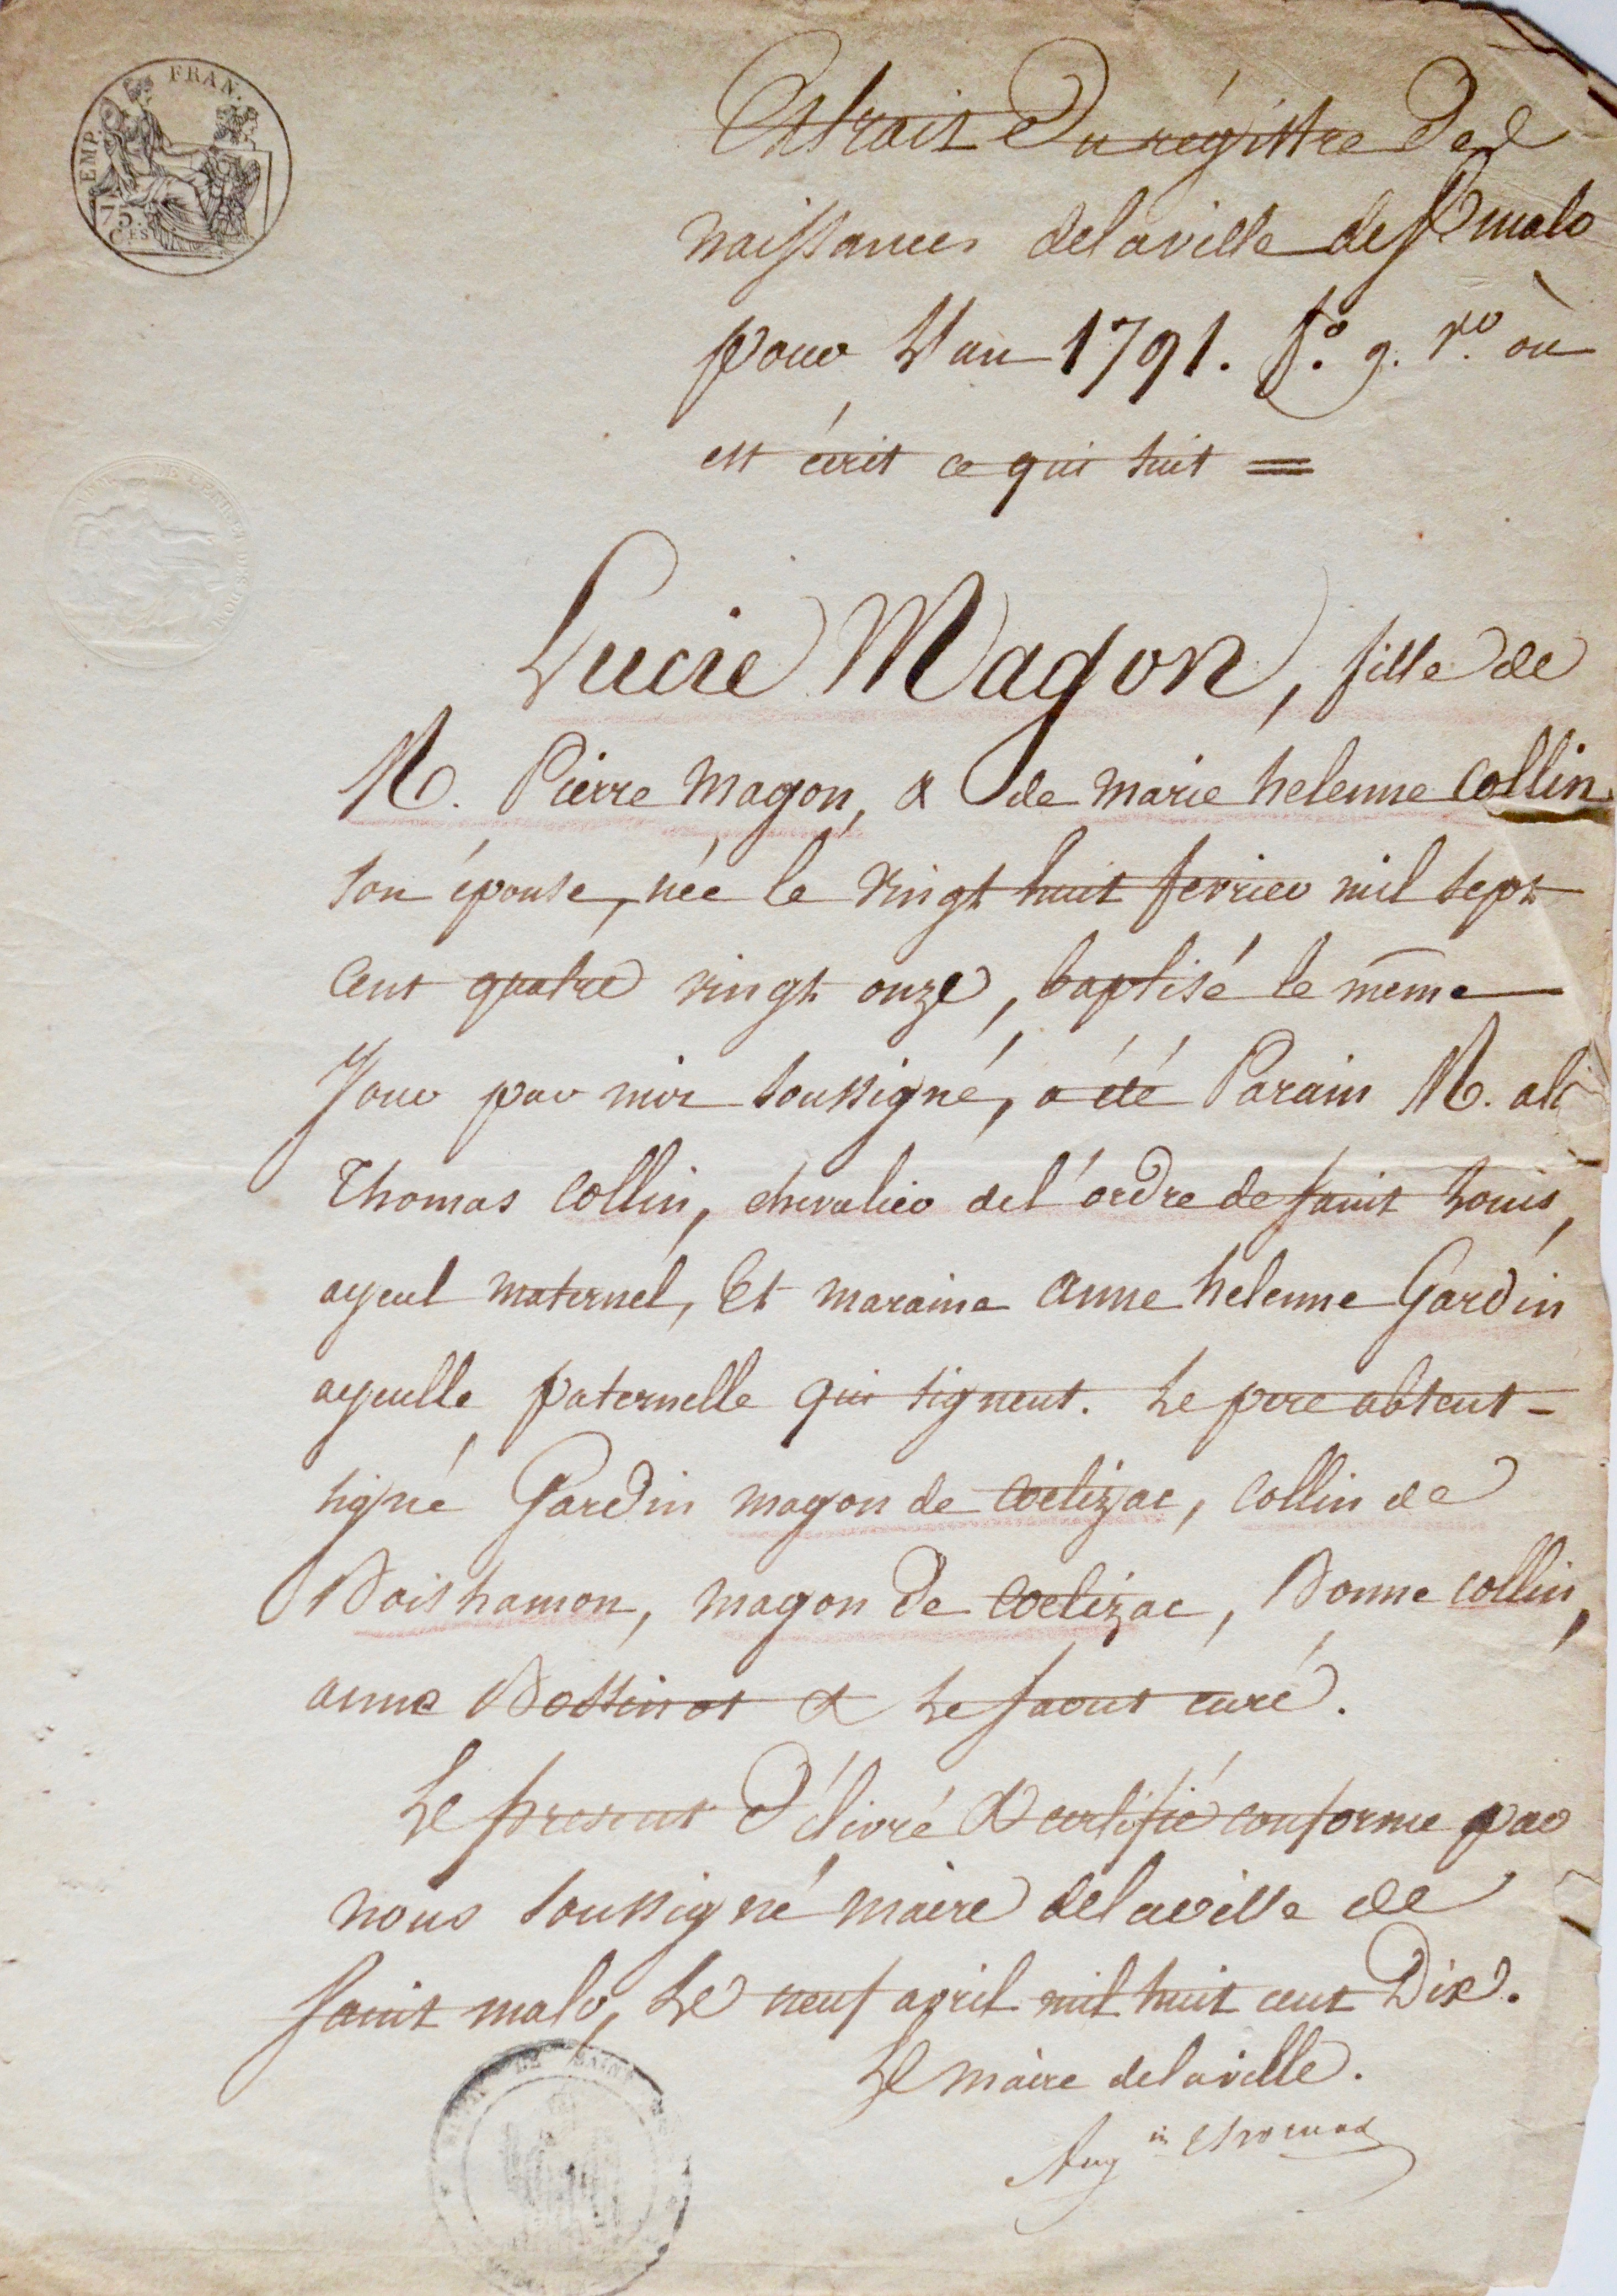 EMP. FRAN.
75. CES
Extrait Du régistre Des
naissances delaville de St malo
pour L'an 1791. f.o 9. r.o où
est écrit ce qui suit =
Lucie Magon, fille de
M. Pierre Magon, & de marie helenne Collin
son épouse, née le vingt huit fevrier mil sept
cent quatre vingt onze, baptisé le même
Jour par moi soussigné, a été Parain M.
Thomas Collin, chevalier del'ordre de saint Louis,
ayeul maternel, Et maraine Anne helenne Gardin
ayeulle paternelle qui signent. Le pere absent -
signé Gardin magon de Coetizac, Collin de
Boishamon, magon De Coetizac, Bonne Collin,
anne Bossinot & Le saout curé.
Le present Délivré & certifié conforme par
nous soussigné maire delaville de
saint malo, Le neuf avril mil huit cent Dix.
Le maire delaville.
Aug in Thomas